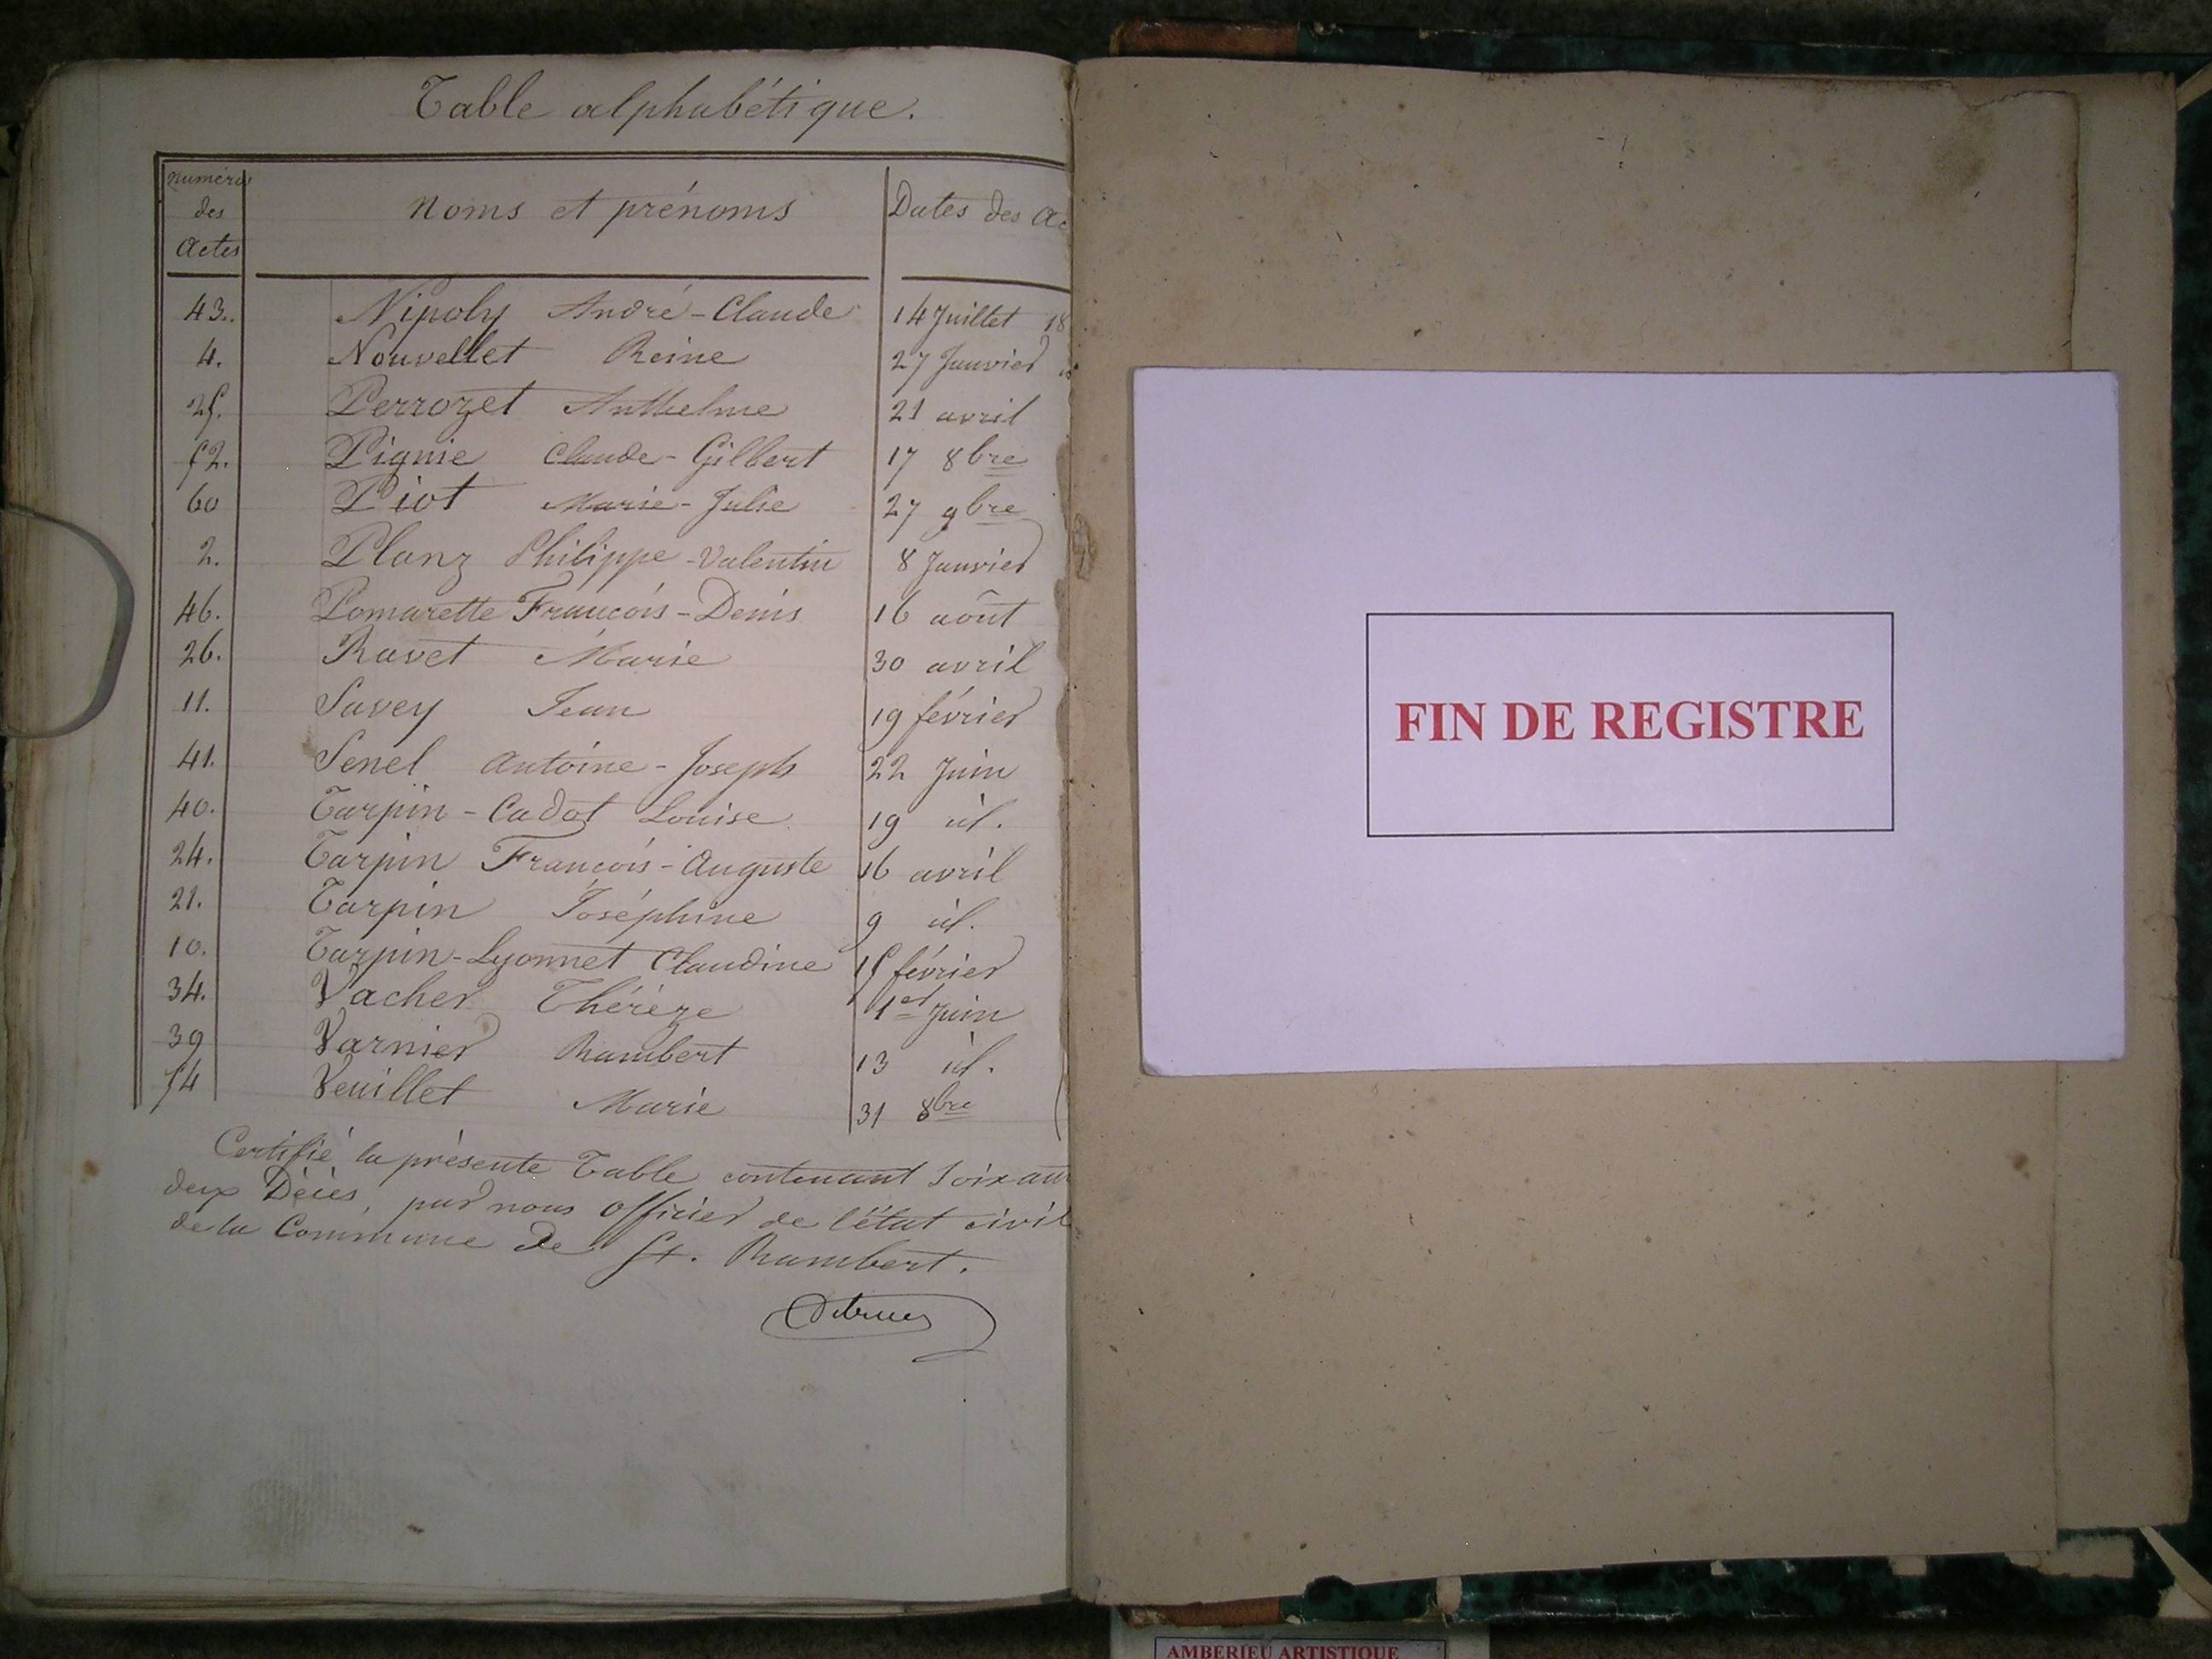 Table alphabétique.
Numéros des Actes Noms et prénoms Dates des Ac
43. Nipoly André-Claude 14 Juillet 18
4. Nouvellet Reine 27 Janvier
25. Perrozet Anthelme 21 avril
52. Pignie Claude-Gilbert 17 8bre
60 Piot Marie-Julie 27 9bre
2. Planz Philippe-Valentin 8 Janvier
46. Pomarette François-Denis 16 août
26. Ravet Marie 30 avril
11. Savey Jean 19 février
41. Senel Antoine-Joseph 22 Juin
40. Tarpin-Cadot Louise 19 id.
24. Tarpin François-Auguste 16 avril
21. Tarpin Joséphine 9 id.
10. Tarpin-Lyonnet Claudine 15 février
34. Vacher Thérèze 1er Juin
39 Varnier Rambert 13 id.
54 Veuillet Marie 31 8bre
Certifié la présente Table contenant Soixan
deux Décès, par nous Officier de l'état civil
de la Commune de St. Rambert.
FIN DE REGISTRE
AMBERIEU ARTISTIQUE